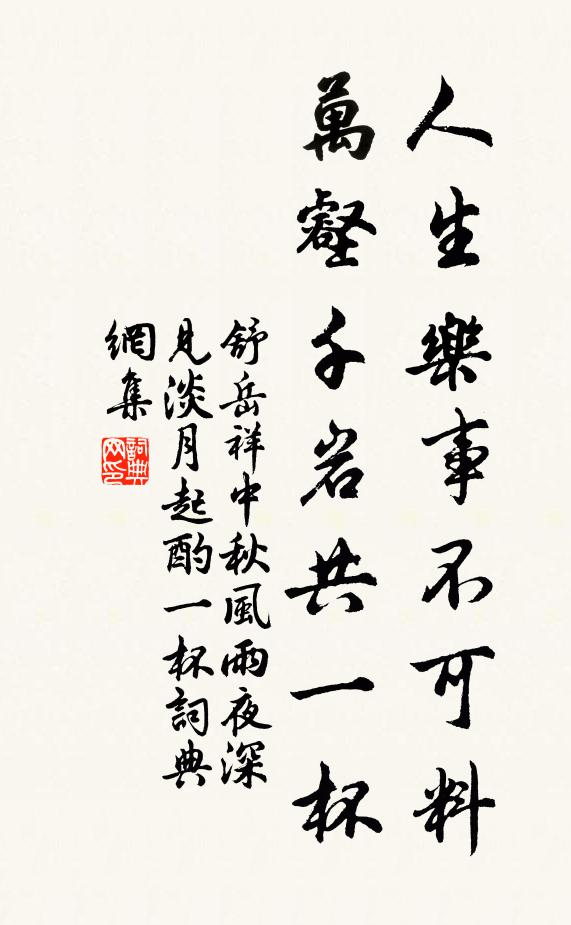 人生樂事不可料
萬壑千岩共一杯
舒岳祥中秋風雨夜深
見淡月起酌一杯詞典
網集
詞典
网印